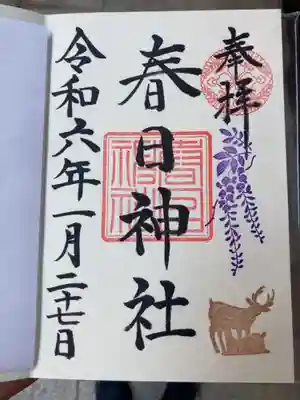 奉拝
春日神社
令和六年一月二十七日
春日神社